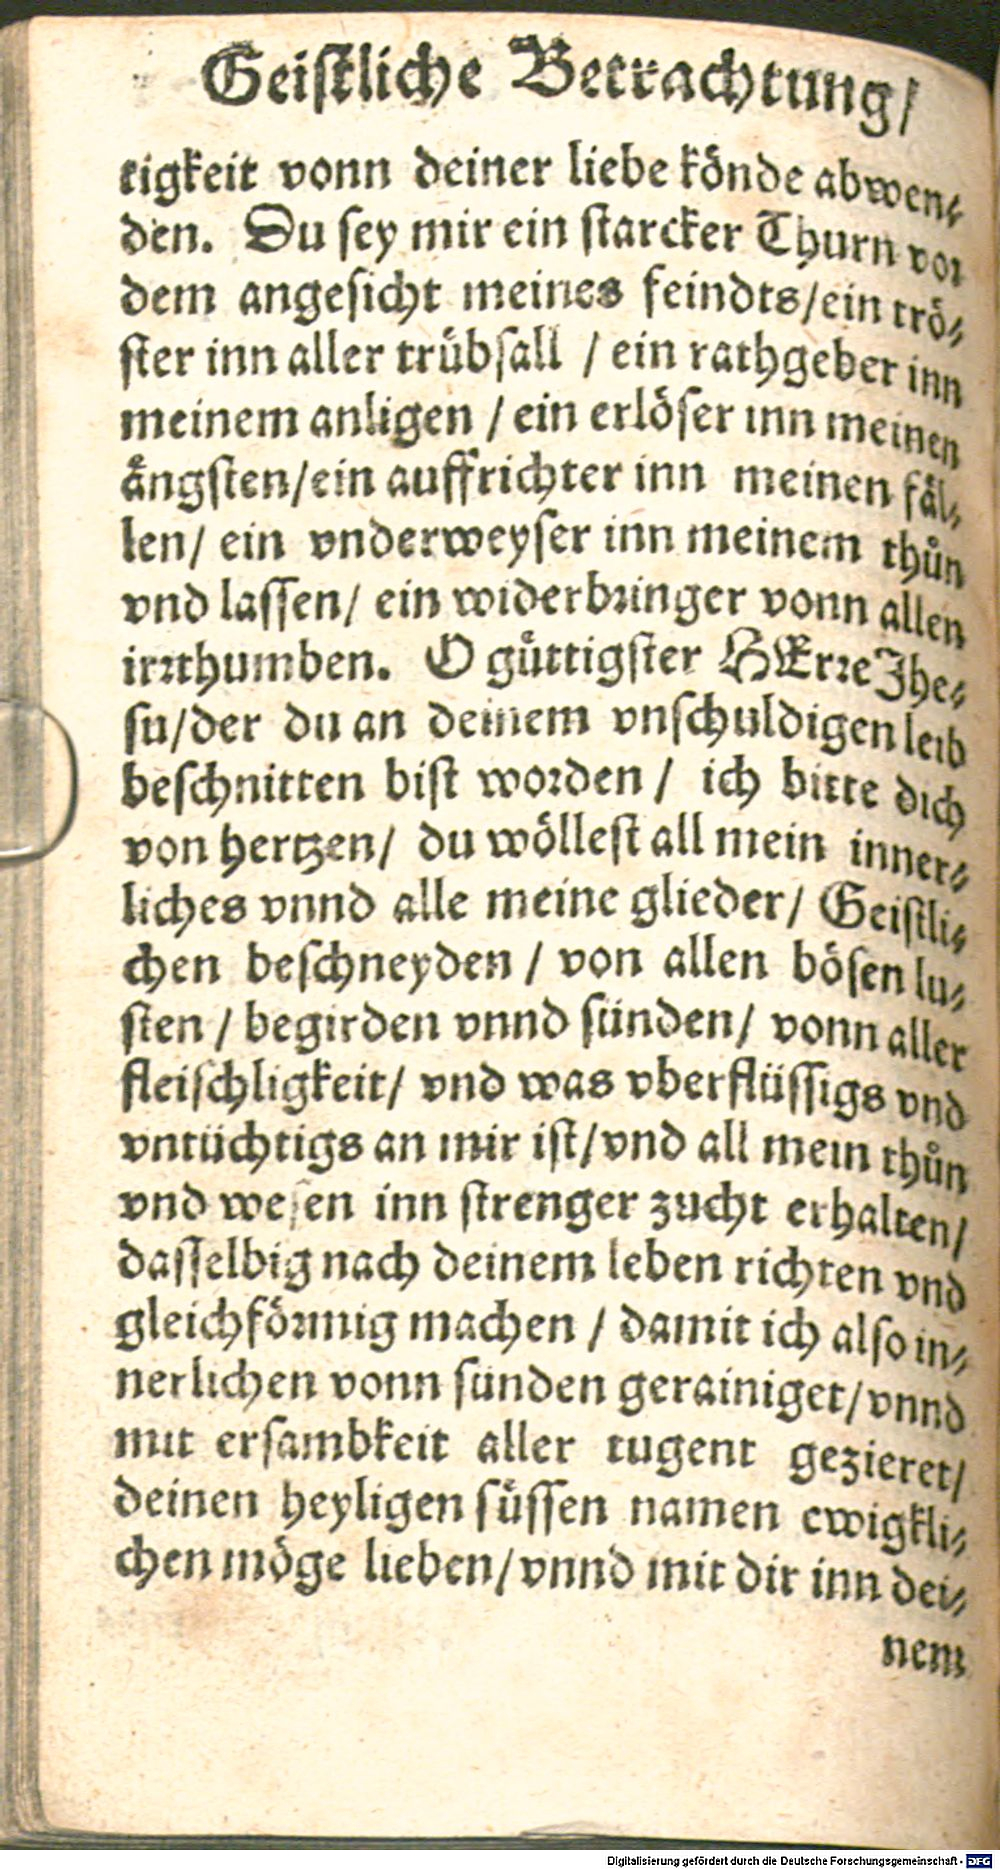 Geistliche Betrachtung/
tigkeit vonn deiner liebe könde abwen⸗
den. Du sey mir ein starcker Thurn vor
dem angesicht meines feindts/ein trö⸗
ster inn aller trübsall / ein rathgeber inn
meinem anligen / ein erlöser inn meinen
ängsten/ein auffrichter inn meinen fäl⸗
len/ ein vnderweyser inn meinem thůn
vnd lassen/ ein widerbringer vonn allen
irrthumben. O güttigster HErre Jhe⸗
su/der du an deinem vnschuldigen leib
beschnitten bist worden / ich bitte dich
von hertzen/ du wöllest all mein inner⸗
liches vnnd alle meine glieder/ Geistli⸗
chen beschneyden / von allen bösen lu⸗
sten / begirden vnnd sünden/ vonn aller
fleischligkeit/ vnd was vberflüssigs vnd
vntüchtigs an mir ist/vnd all mein thůn
vnd wesen inn strenger zucht erhalten/
dasselbig nach deinem leben richten vnd
gleichförmig machen / damit ich also in⸗
nerlichen vonn sünden gerainiget/vnnd
mit ersambkeit aller tugent gezieret/
deinen heyligen süssen namen ewigkli⸗
chen möge lieben/vnnd mit dir inn dei⸗
nem
Digitalisierung gefördert durch die Deutsche Forschungsgemeinschaft - DFG